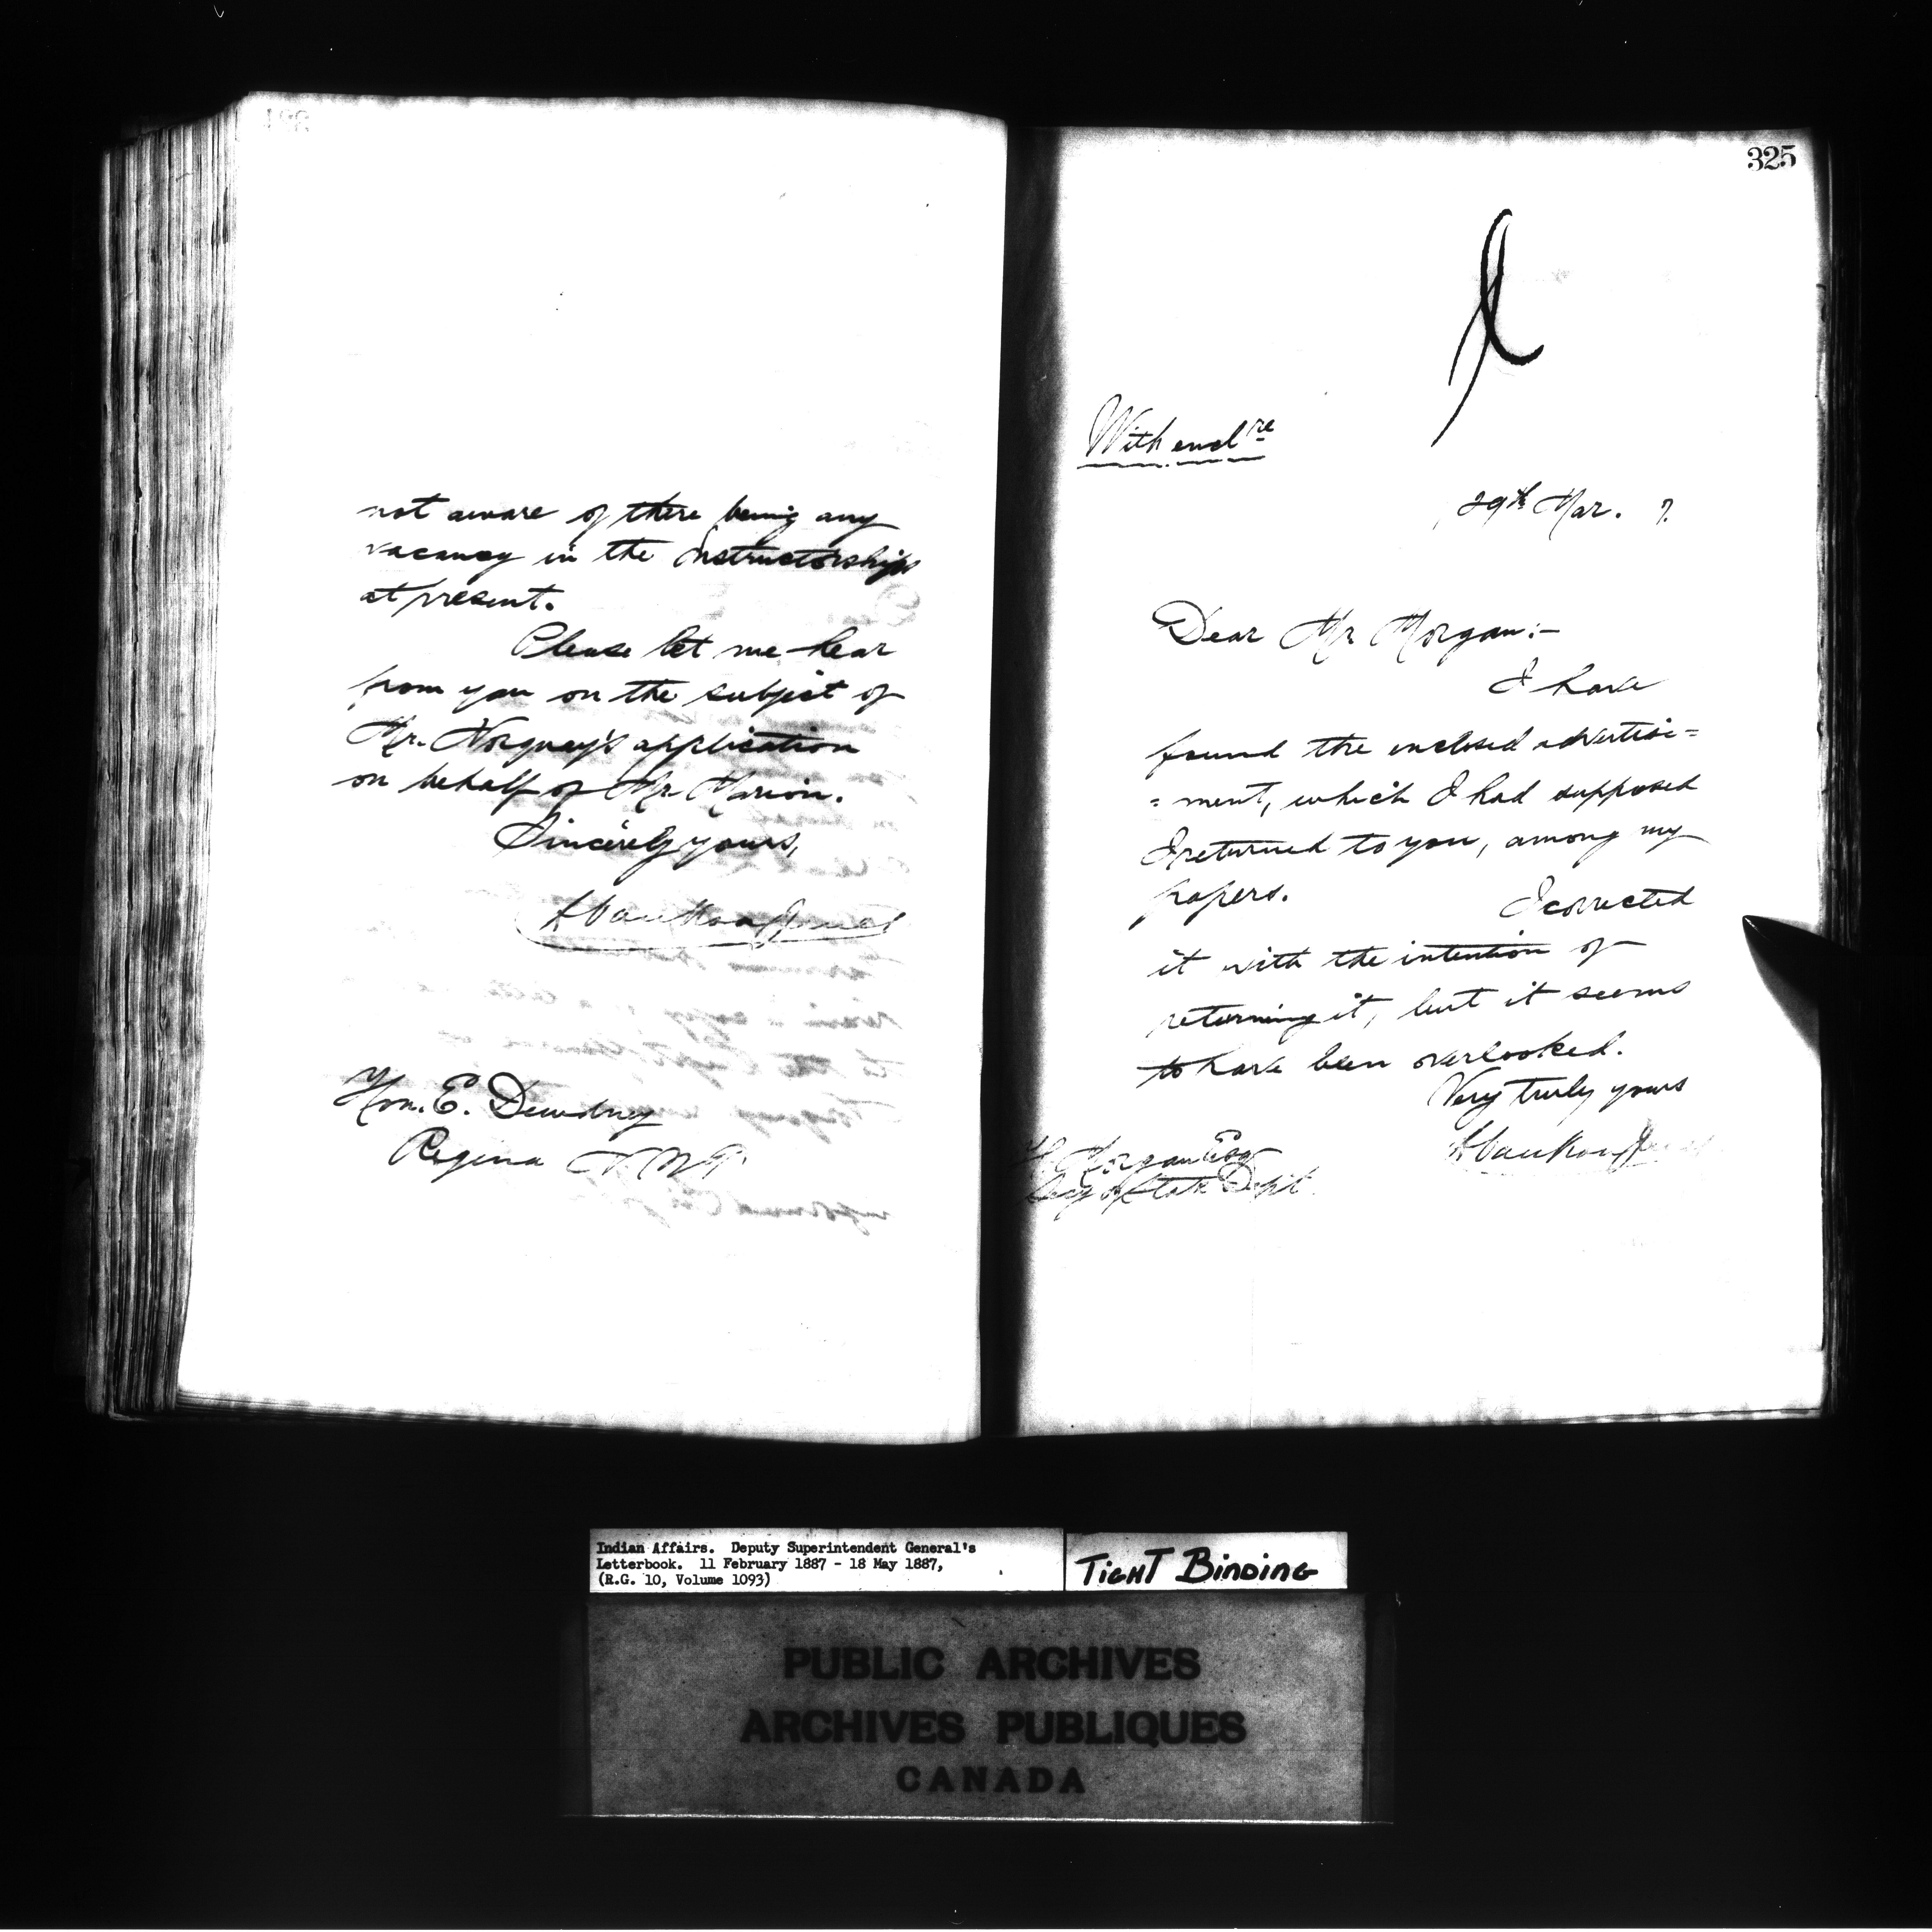 not aware of there being any
vacancy in the Instructorships
at present.
Please let me hear
from you on the subject of
Mr. Norquay's application
on behalf of Mr Marion.
Sincerely yours,
L Vankoughnet
Hon. E. Dewdney
Regina N.W.T.
325
With enclre
29th Mar. 7.
Dear Mr Morgan:-
I have
found the enclosed advertise=
=ment, which I had supposed
I returned to you, among my
papers.
I corrected
it with the intention of
returning it, but it seems
to have been overlooked.
Very truly yours
L Vankoughnet
H. Morgan Esq
Secy of State Dept.
Indian Affairs. Deputy Superintendent General's
Letterbook. 11 February 1887 - 18 May 1887,
(R.G. 10, Volume 1093)
TIGHT BINDING
PUBLIC ARCHIVES
ARCHIVES PUBLIQUES
CANADA